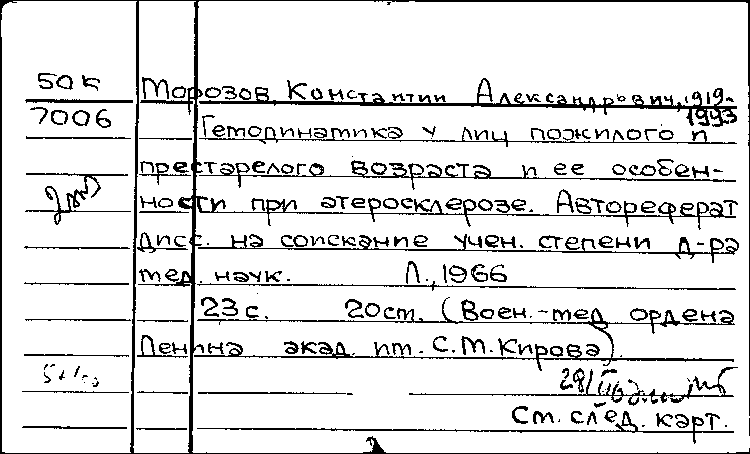 50 к Морозов, Константин Александрович, 1919-
1993
7006 Гемодинамика у лиц пожилого и
престарелого возраста и ее особен-
ности при атеросклерозе. Автореферат
дисс. на соискание учен. степени д-ра
мед. наук. Л., 1966
23 с. 20 см. (Воен.-мед. ордена
Ленина акад. им. С.М.Кирова)
См. след. карт.